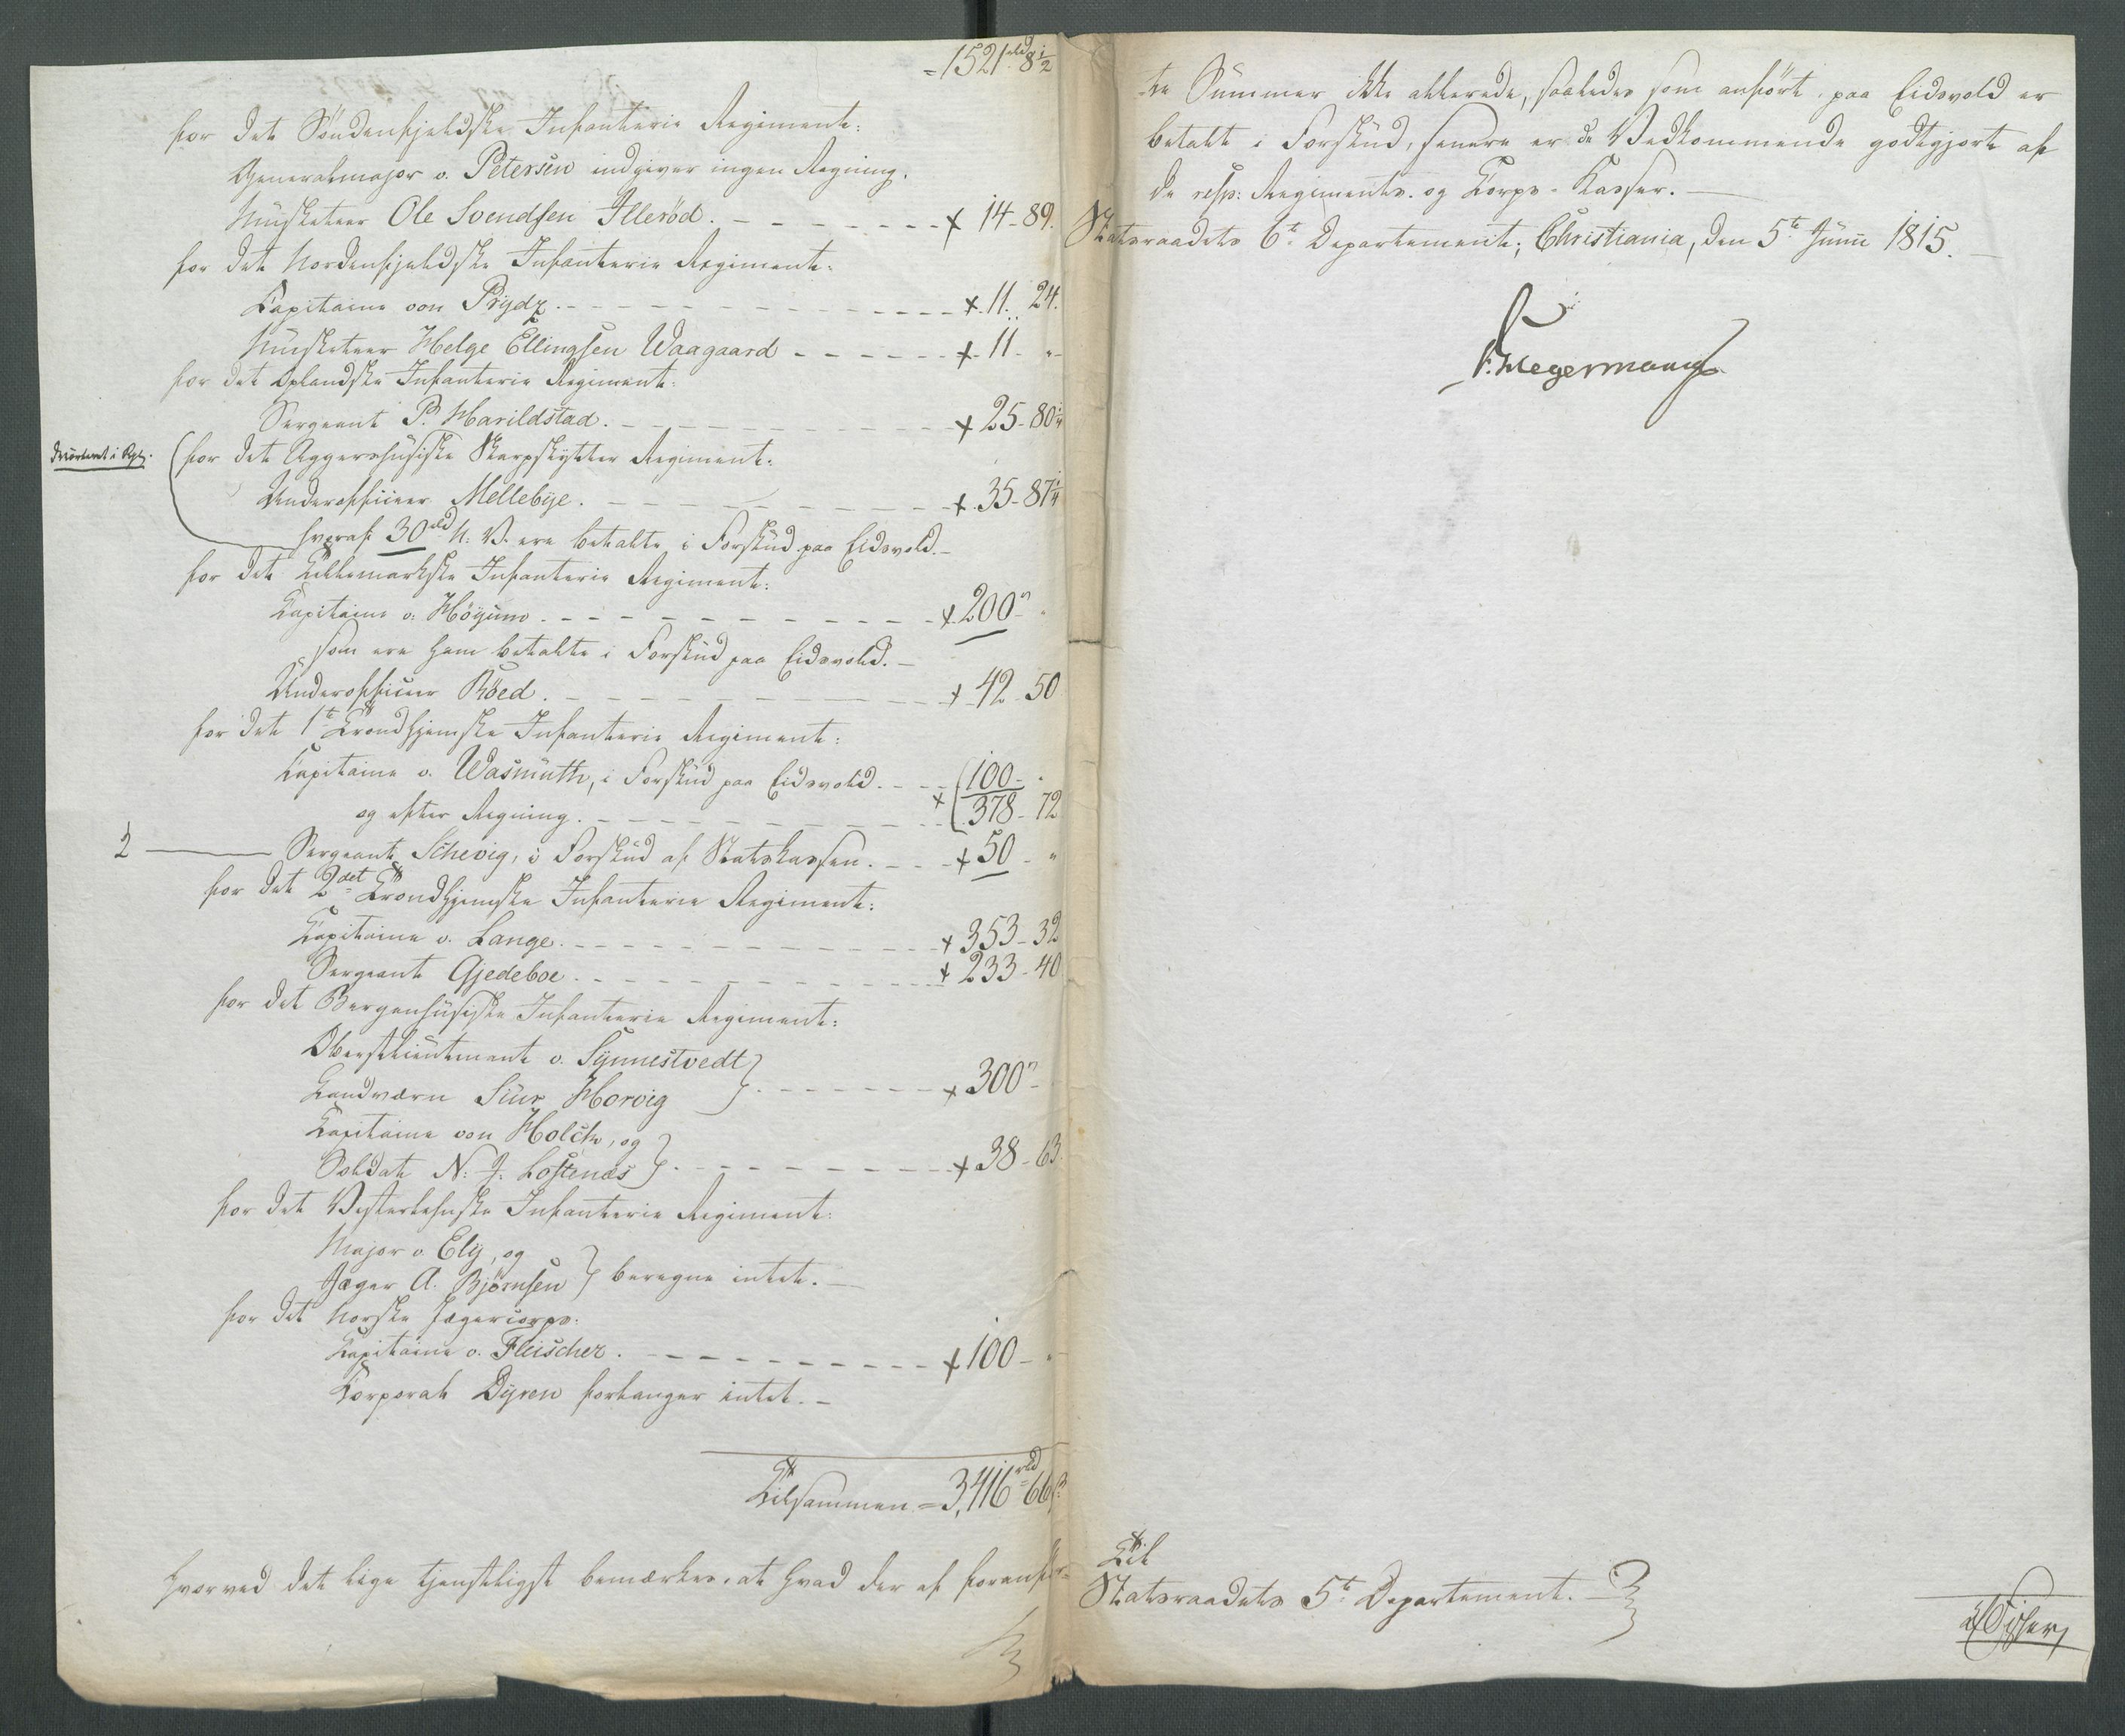 = 1521 rbd 8 1/2
for det Söndenfjeldske Infanterie Regiment:
Generalmajor v. Petersen indgiver ingen Regning.
Musketeer Ole Svendsen Illeröd. - - - - - - + 14 - 89.
for det Nordenfjeldske Infanterie Regiment:
Capitaine von Prydz. - - - - - - - - - - + 11. 24.
Musketeer Helge Ellingsen Waagaard - - - - - - + 11 - "
for det Oplandske Infanterie Regiment:
Sergeant P. Harildstad. - - - - - - - - - + 25 - 80 1/4
for det Aggershusiske Skarpskytter Regiment:
Underofficeer Mellebye. - - - - - - - - - - + 35 - 87 1/4
hvoraf 30 rbd N: V. ere betalte i Forskud paa Eidsvold. -
for det Tellemarkske Infanterie Regiment:
Capitaine v. Höyum. - - - - - - - - - - + 200 "
som ere ham betalte i Forskud paa Eidsvold. -
Underofficeer Röed. - - - - - - - - - + 42 - 50
for det 1te Trondhjemske Infanterie Regiment:
Capitaine v. Wasmuth, i Forskud paa Eidsvold. - - 100 - "
og efter Regning. - - - - - - - - - + 378 - 72
2 Sergeant Schevig, i Forskud af Statskassen. - - - + 50 - "
for det 2det Trondhjemske Infanterie Regiment:
Capitaine v. Lange. - - - - - - - - - - + 353 - 32
Sergeant Gjedeboe. - - - - - - - - - - + 233 - 40
for det Bergenhusiske Infanterie Regiment:
Oberstlieutenant v. Synnestvedt
Landværn Siur Horvig } - - - - - - - + 300 "
Capitaine von Holck, og
Soldat N: J: Loftenæs } - - - - - - - - - + 38 - 63.
for det Vesterlehnske Infanterie Regiment:
Major v. Ely, og
Jæger A. Björnsen } beregne intet. -
for det Norske Jægercorps:
Capitaine v. Fleischer. - - - - - - - - - + 100 - "
Corporal Dyren forlanger intet. -
Tilsammen = 3,416 rbd 66 s
Hvorved det lige tjenstligst bemærkes, at hvad der af foranför-
te Summer ikke allerede, saaledes som anfört, paa Eidsvold er
betalt i Forskud, senere er de Vedkommende godtgjort af
de resp: Regiments- og Corps-Kasser. -
Statsraadets 6te Departement; Christiania, den 5te Junii 1815. -
Hegermann
Til
Statsraadets 5te Departement. -